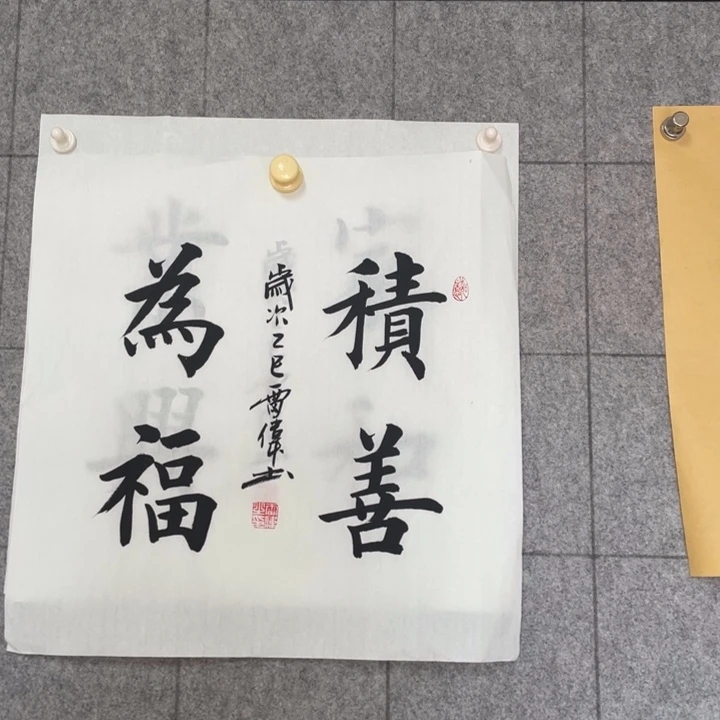 積善
歲次乙巳雷偉书
為福